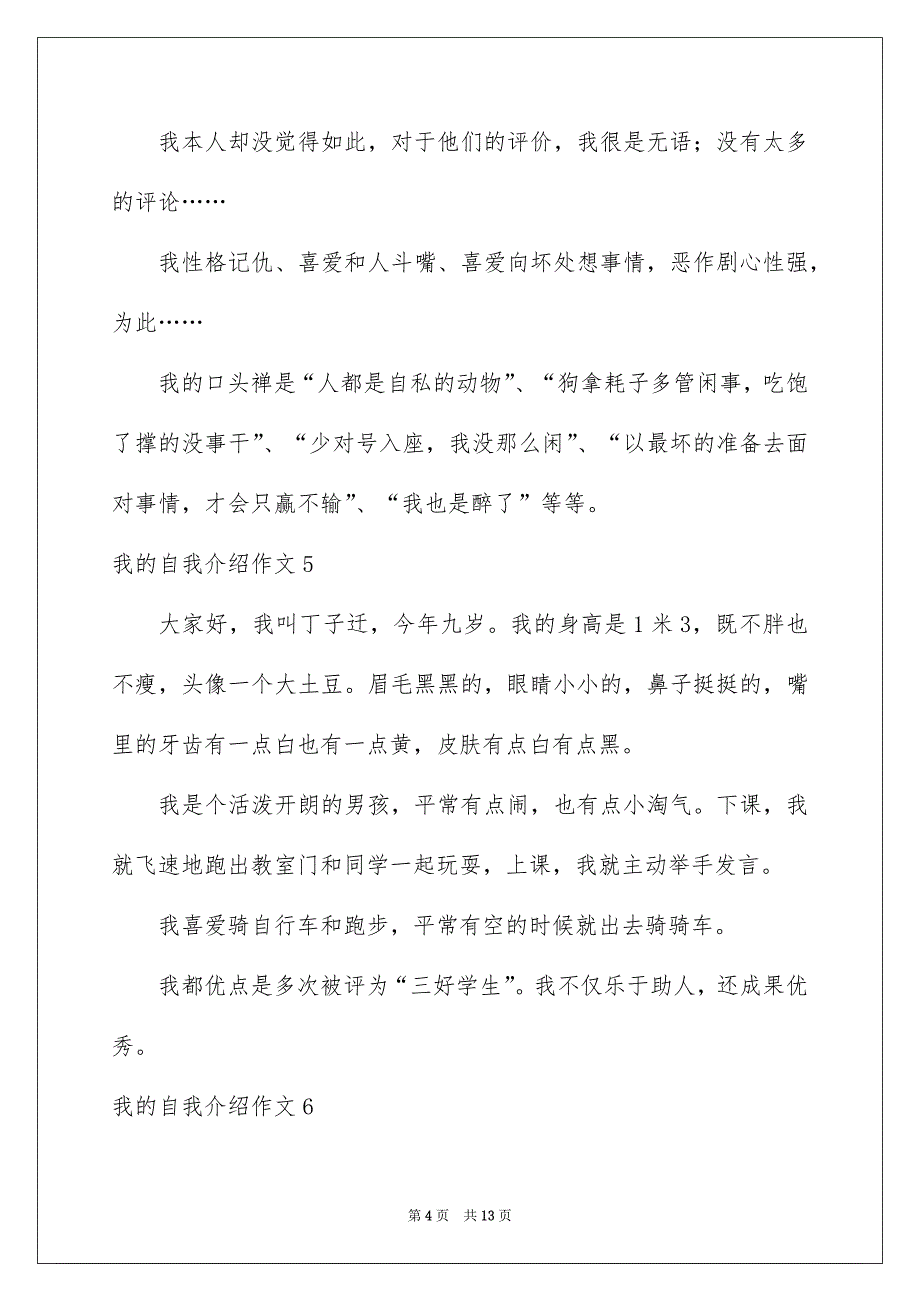 我本人却没觉得如此，对于他们的评价，我很是无语；没有太多
的评论……
我性格记仇、喜爱和人斗嘴、喜爱向坏处想事情，恶作剧心性强，
为此……
我的口头禅是“人都是自私的动物”、“狗拿耗子多管闲事，吃饱
了撑的没事干”、“少对号入座，我没那么闲”、“以最坏的准备去面
对事情，才会只赢不输”、“我也是醉了”等等。
我的自我介绍作文5
大家好，我叫丁子迁，今年九岁。我的身高是1米3，既不胖也
不瘦，头像一个大土豆。眉毛黑黑的，眼睛小小的，鼻子挺挺的，嘴
里的牙齿有一点白也有一点黄，皮肤有点白有点黑。
我是个活泼开朗的男孩，平常有点闹，也有点小淘气。下课，我
就飞速地跑出教室门和同学一起玩耍，上课，我就主动举手发言。
我喜爱骑自行车和跑步，平常有空的时候就出去骑骑车。
我都优点是多次被评为“三好学生”。我不仅乐于助人，还成果优
秀。
我的自我介绍作文6
第4页 共13页